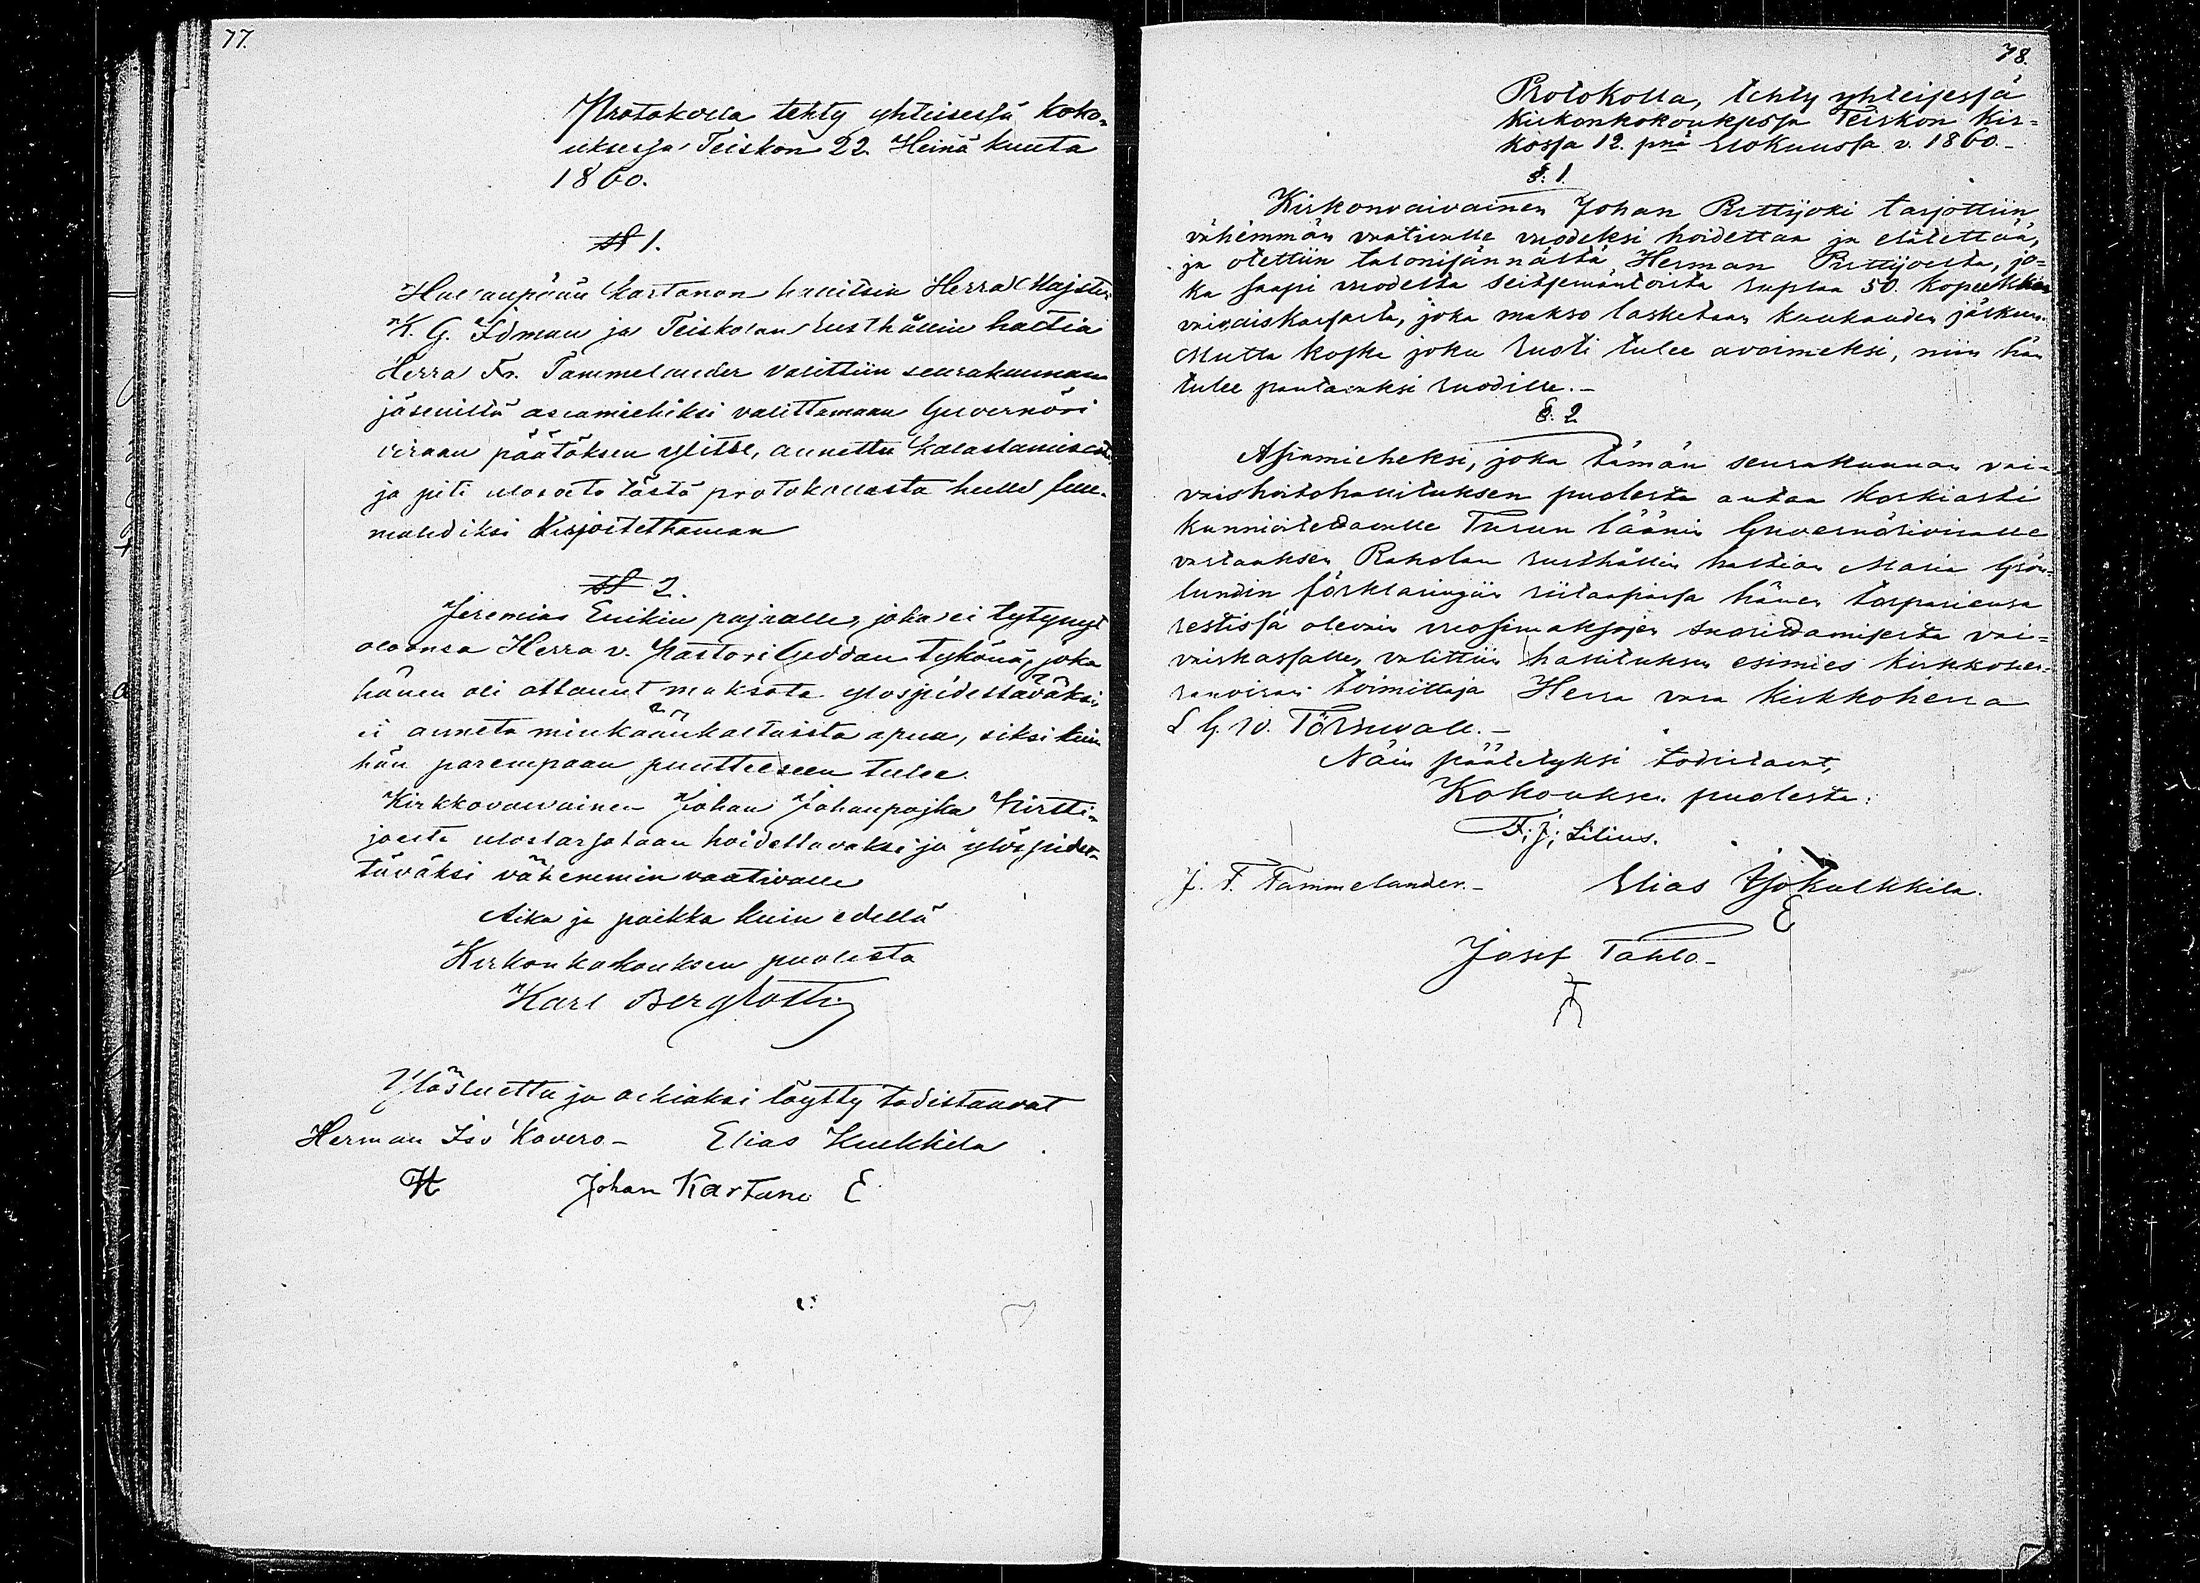 77.
Protokolla tehty yhteisessä koko-
uksessa Teiskon 22. Heinä kuuta
1860.
§ 1.
kartanon hallitsia Herra Majsteri
K. G. Idman ja Teiskolan Rusthållin haltia
Herra Fr. Tammelander valittiin seurakunnan
jäsenistä asiamiehiksi valittamaan Guvernöri
viraan päätöksen ylitse, annettu kalastamisesta,
ja piti ulosoto tästä protokollasta heille full-
maktiksi kirjoitettaman
§ 2.
Jeremias Enikin pojalle, joka ei tytynyt
oloonsa Herra v. Pastori Geddan tykönä, joka
hänen oli ottanut maksota ylöspidettäväksi
ei anneta minkäänkaltaista apua, siksi kuin
hän parempaan puutteeseen tulee.
Kirkkovaivainen Johan Johanpojka Pirtti-
joesta ulostarjotaan hoidettavaksi ja ylöspidet-
täväksi vähemmin vaativalle
Aika ja paikka kuin edellä
Kirkonkokouksen puolesta
Karl Bergroth
Ylösluettu ja oikiaksi löytty todistaavat
Herman Iso Kovero - Elias Kulkkila
H Johan Kartano E
78.
Protokolla, tehty yhteisessä
kirkonkokouksessa Teiskon Kir=
kossa 12. pnä Elokuussa v. 1860.-
§. 1.
Kirkonvaivainen Johan Pirttijoki tarjottiin
vähemmän vaativalle vuodeksi hoidettaa ja elätettää,
ja otettiin talonisännältä Herman Pirttijoelta, jo=
ka saapi vuodelta seitsemäntoista ruplaa 50. kopeekkaa
vaivaiskassasta, joka makso lasketaan kuukauden jälkeen.
Mutta koska joku ruoti tulee avoimeksi, niin hän
tulee pantavaksi ruodille.-
§. 2
Asiamieheksi, joka tämän seurakunnan vai=
vaishoitohallituksen puolesta antaa korkiasti
kunnioitettavalle Turun läänin Guvernöriviralle
vastauksen Rakolan rusthållin haltian Maria Grön=
lundin förklaringiin riitaasiassa hänen torpariensa
restissä olevain vuosimaksojen suorittamisesta vai=
vaiskassalle, valittiin hallituksen esimies kirkkoher=
ranviran toimittaja Herra vara kirkkoherra
L G. W. Törnwall.-
Näin päätetyksi todistavat,
Kokouksen puolesta:
F; J; Lilius.
J. F. Tammelander.- Elias Kulkkila.
E
Josef Tahlo-